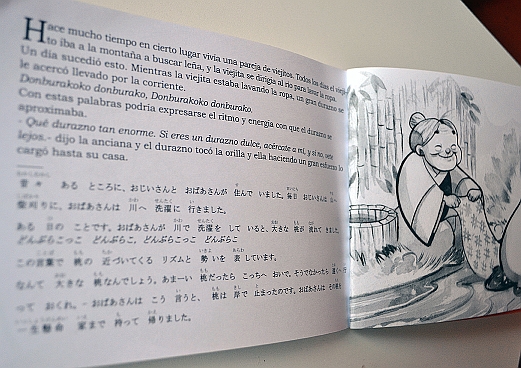 Hace mucho tiempo en cierto lugar vivía una pareja de viejitos. Todos los días el viejito
iba a la montaña a buscar leña, y la viejita se dirigía al río para lavar la ropa.
Un día sucedió esto. Mientras la viejita estaba lavando la ropa, un gran durazno se
le acercó llevado por la corriente.
Donburakoko donburako, Donburakoko donburako.
Con estas palabras podría expresarse el ritmo y energía con que el durazno se
aproximaba.
- Qué durazno tan enorme. Si eres un durazno dulce, acércate a mí, y si no, vete
lejos.- dijo la anciana y el durazno tocó la orilla y ella haciendo un gran esfuerzo lo
cargó hasta su casa.
昔々 ある ところに、おじいさんと おばあさんが 住んで いました。毎日 おじいさんは 山へ
柴刈りに、おばあさんは 川へ 洗濯に 行きました。
ある 日の ことです。おばあさんが 川で 洗濯を して いると、大きな 桃が 流れて きました。
どんぶらこっこ どんぶらこ、どんぶらこっこ どんぶらこ
この言葉で 桃の 近づいてくる リズムと 勢いを 表しています。
なんて 大きな 桃なんでしょう。あまーい 桃だったら こっちへ おいで。そうでなかったら 遠くへ 行
って おくれ。- おばあさんは こう 言うと、 桃は 岸で 止まったのです。おばあさんは その桃を
一生懸命 家まで 持って 帰りました。